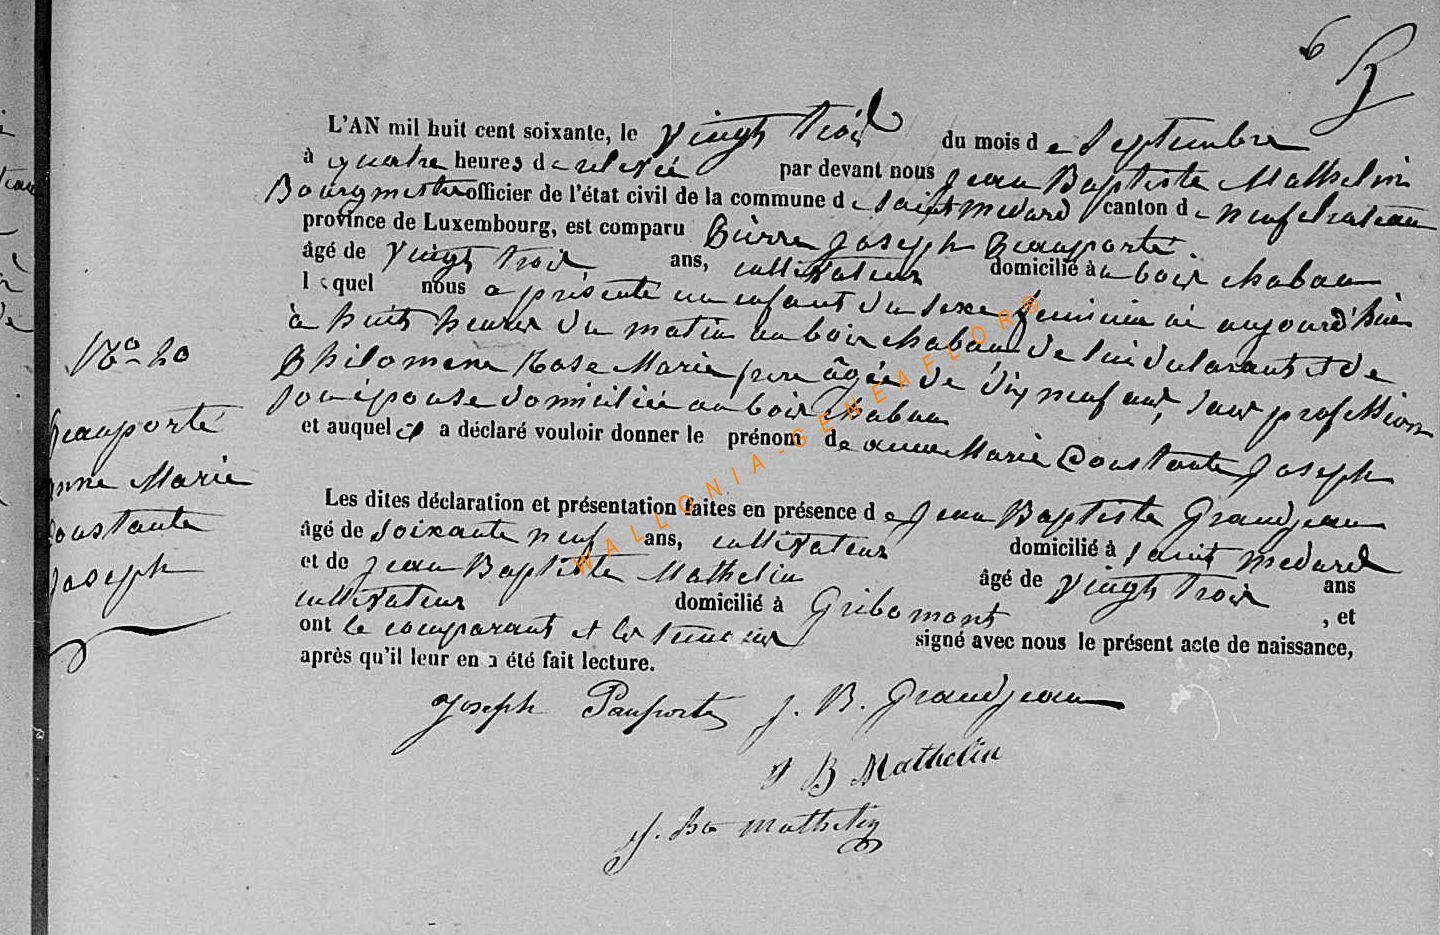 6
L'AN mil huit cent soixante, le vingt trois du mois de Septembre
à quatre heures de relevée par devant nous Jean Baptiste Mathelin
Bourgmestre officier de l'état civil de la commune de Saint Medard canton de neufchateau
province de Luxembourg, est comparu Pierre Joseph Peauporté
âgé de vingt trois ans, cultivateur domicilié à au bois chabau
lequel nous a présenté un enfant du sexe feminin né aujourd'hui
à huit heures du matin au bois chabau de lui déclarant et de
N° 20
Philomene Rose Marie âgée de dix neuf ans, sans profession
son épouse domiciliée au bois chabau
Peauporté
et auquel il a déclaré vouloir donner le prénom de anne Marie Constante Joseph
anne Marie
Constante
Joseph
Les dites déclaration et présentation faites en présence de Jean Baptiste Grandjean
âgé de soixante neuf ans, cultivateur domicilié à saint medard
et de Jean Baptiste Mathelin âgé de vingt trois ans
cultivateur domicilié à Gribomont , et
ont le comparant et les temoins signé avec nous le présent acte de naissance,
après qu'il leur en a été fait lecture.
Joseph Pauporté J. B. Grandjean
J B Mathelin
J. Bte Mathelin
WALLONIA-GENEAFLOR®